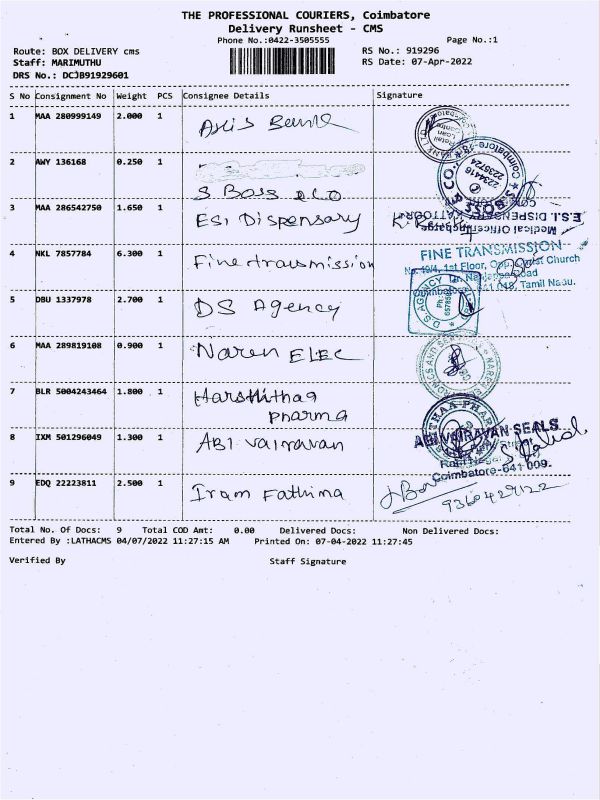 THE PROFESSIONAL COURIERS, Coimbatore
Delivery Runsheet - CMS
Phone No.:0422-3505555
Page No.:1
Route: BOX DELIVERY cms
RS No.: 919296
Staff: MARIMUTHU
RS Date: 07-Apr-2022
DRS No.: DCJB91929601
S No Consignment No Weight PCS Consignee Details Signature
1 MAA 280999149 2.000 1 Axis Bank
2 AWY 136168 0.250 1
S Boss &CO
3 MAA 286542750 1.650 1 ESI Dispensary
Medical Officer Incharge
E.S.I. DISPENSARY, KATTOOR
4 NKL 7857784 6.300 1 Fine transmission
FINE TRANSMISSION
No. 10/4, 1st Floor, Opp. Christ Church
Coimbatore - 641 018, Tamil Nadu.
5 DBU 1337978 2.700 1 DS Agency
D.S AGENCY
6 MAA 289819108 0.900 1 Naren ELEC
7 BLR 5004243464 1.800 1 Harshithaa
pharma
8 IXM 501296049 1.300 1 ABI Vairavan
ABI VAIRAVAN SEALS
Coimbatore-641 009.
9 EDQ 22223811 2.500 1 Iram Fathima
Total No. Of Docs: 9 Total COD Amt: 0.00 Delivered Docs: Non Delivered Docs:
Entered By :LATHACMS 04/07/2022 11:27:15 AM Printed On: 07-04-2022 11:27:45
Verified By Staff Signature